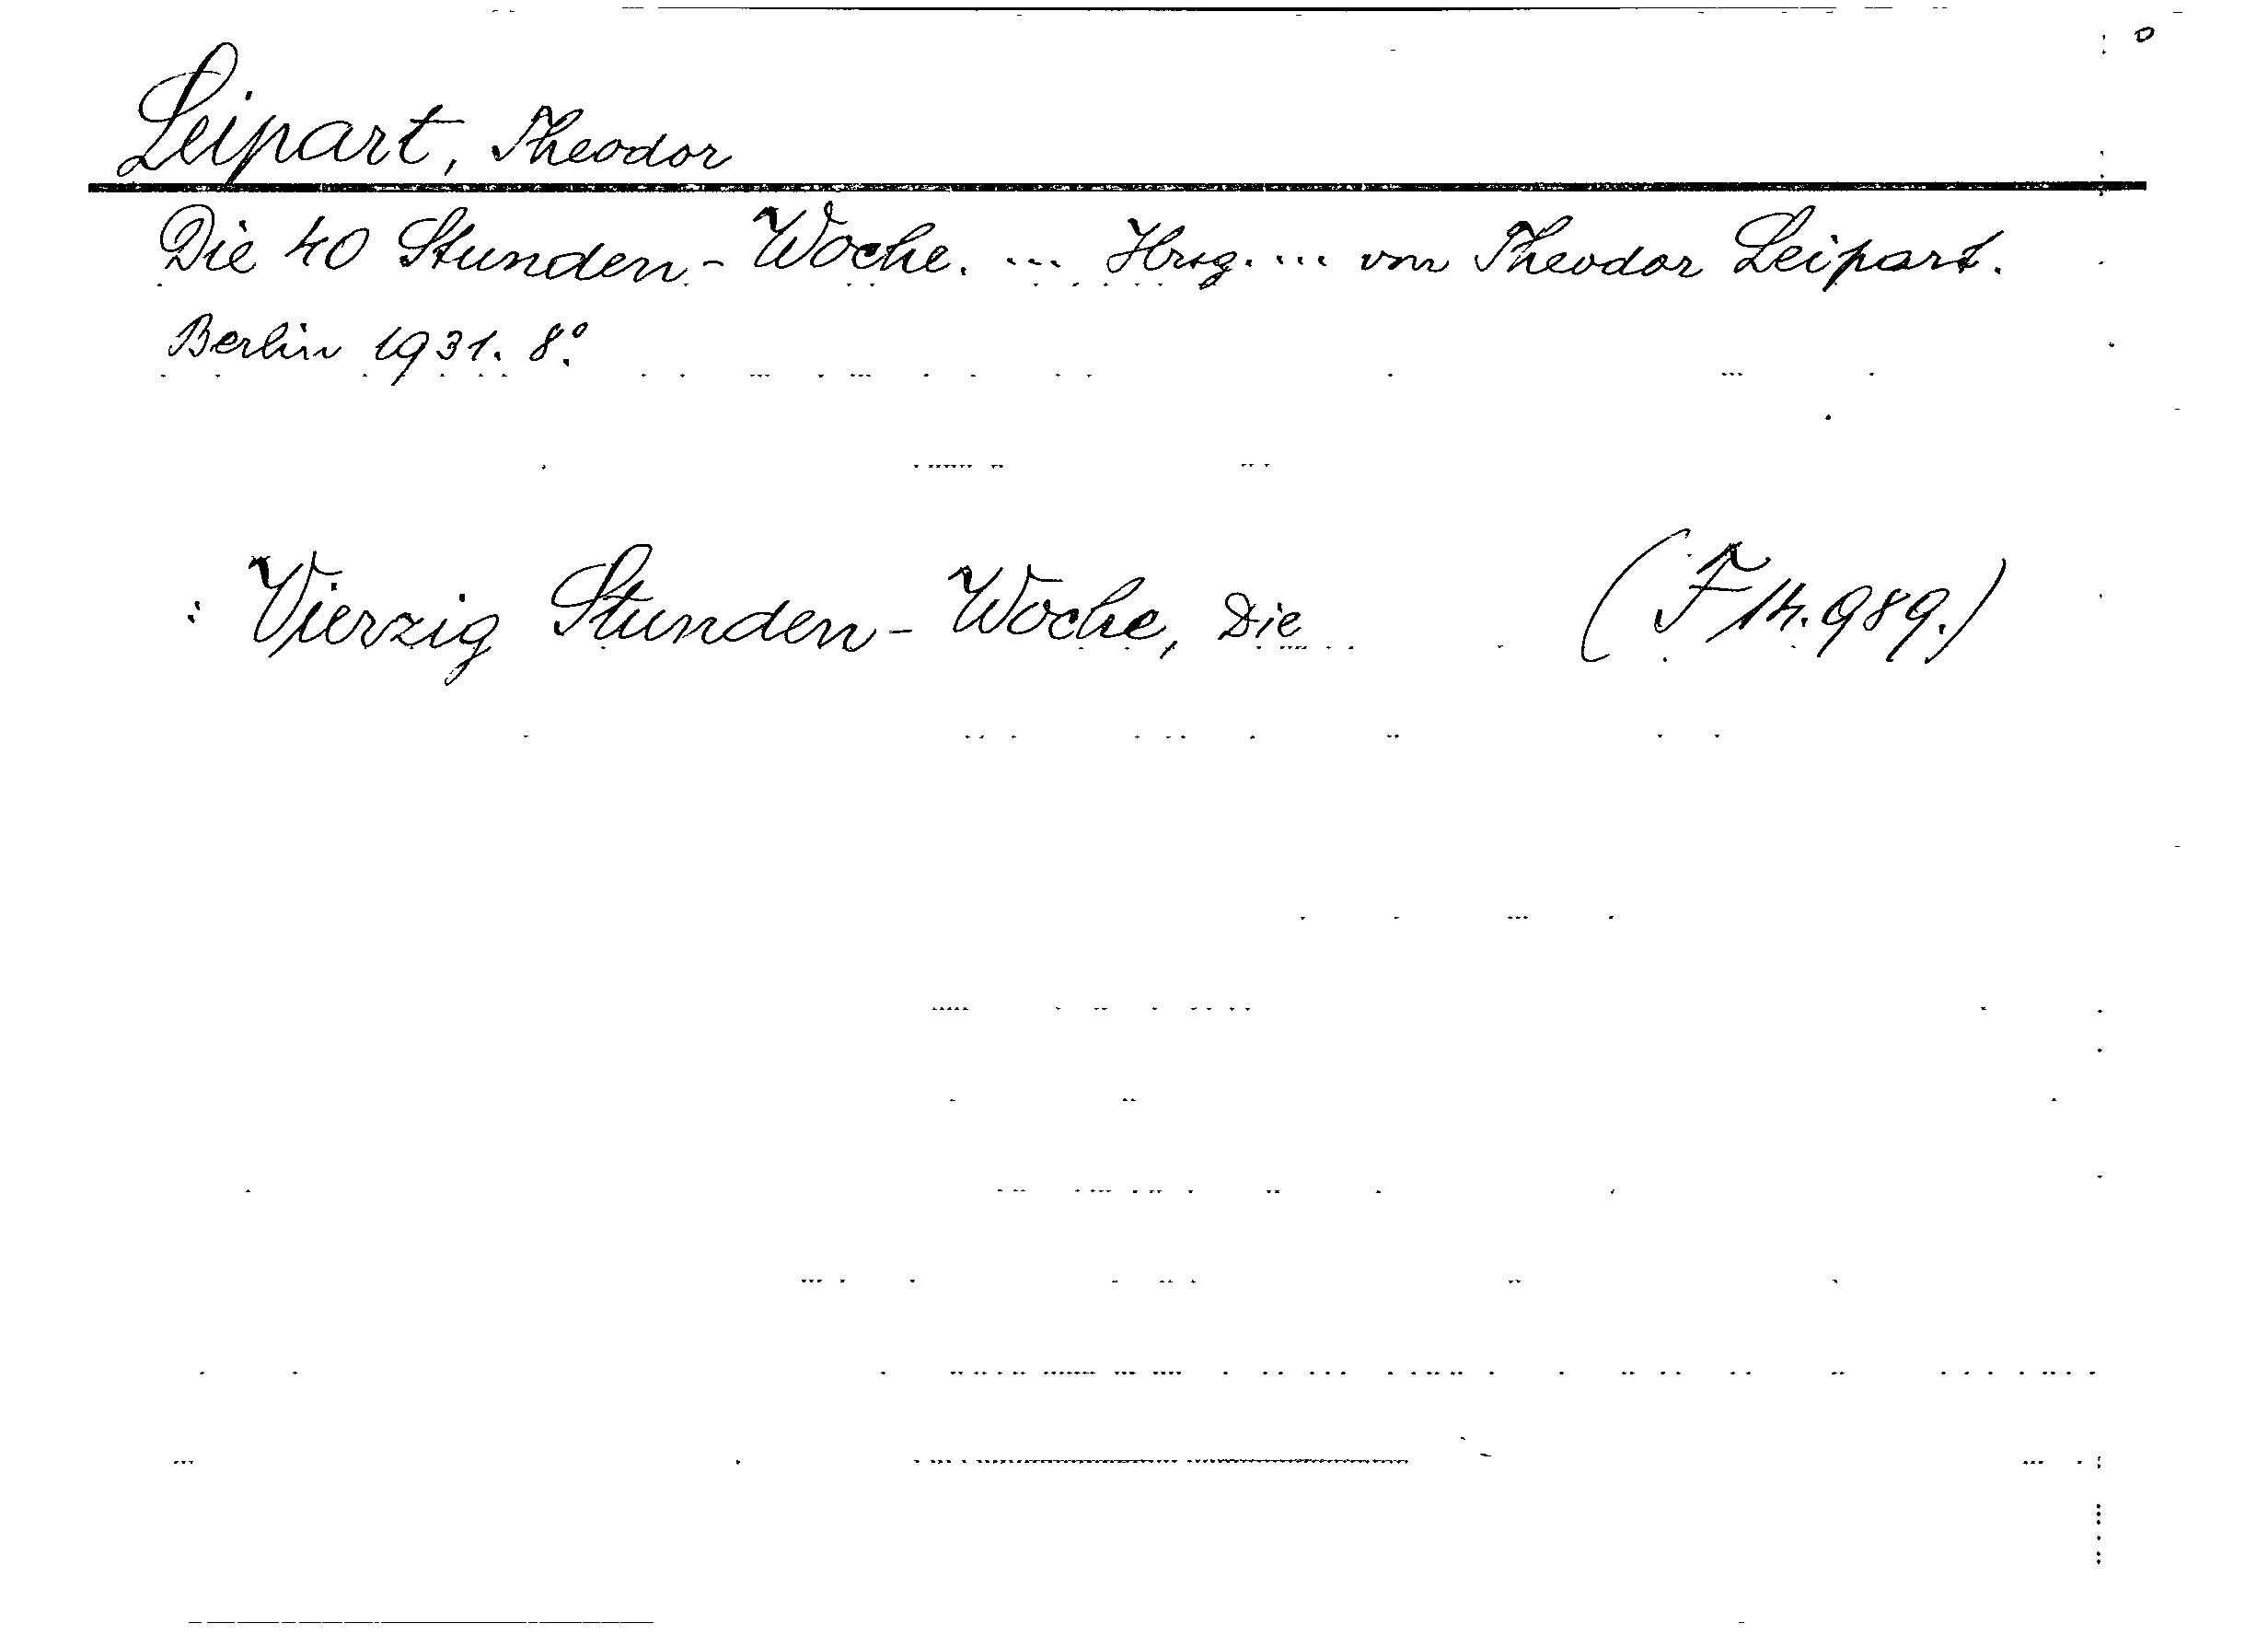 Leipart, Theodor
Die 40 Stunden-Woche. ... Hrsg. ... von Theodor Leipart.
Berlin 1931. 8°.
: Vierzig Stunden-Woche, Die (F 14.989.)